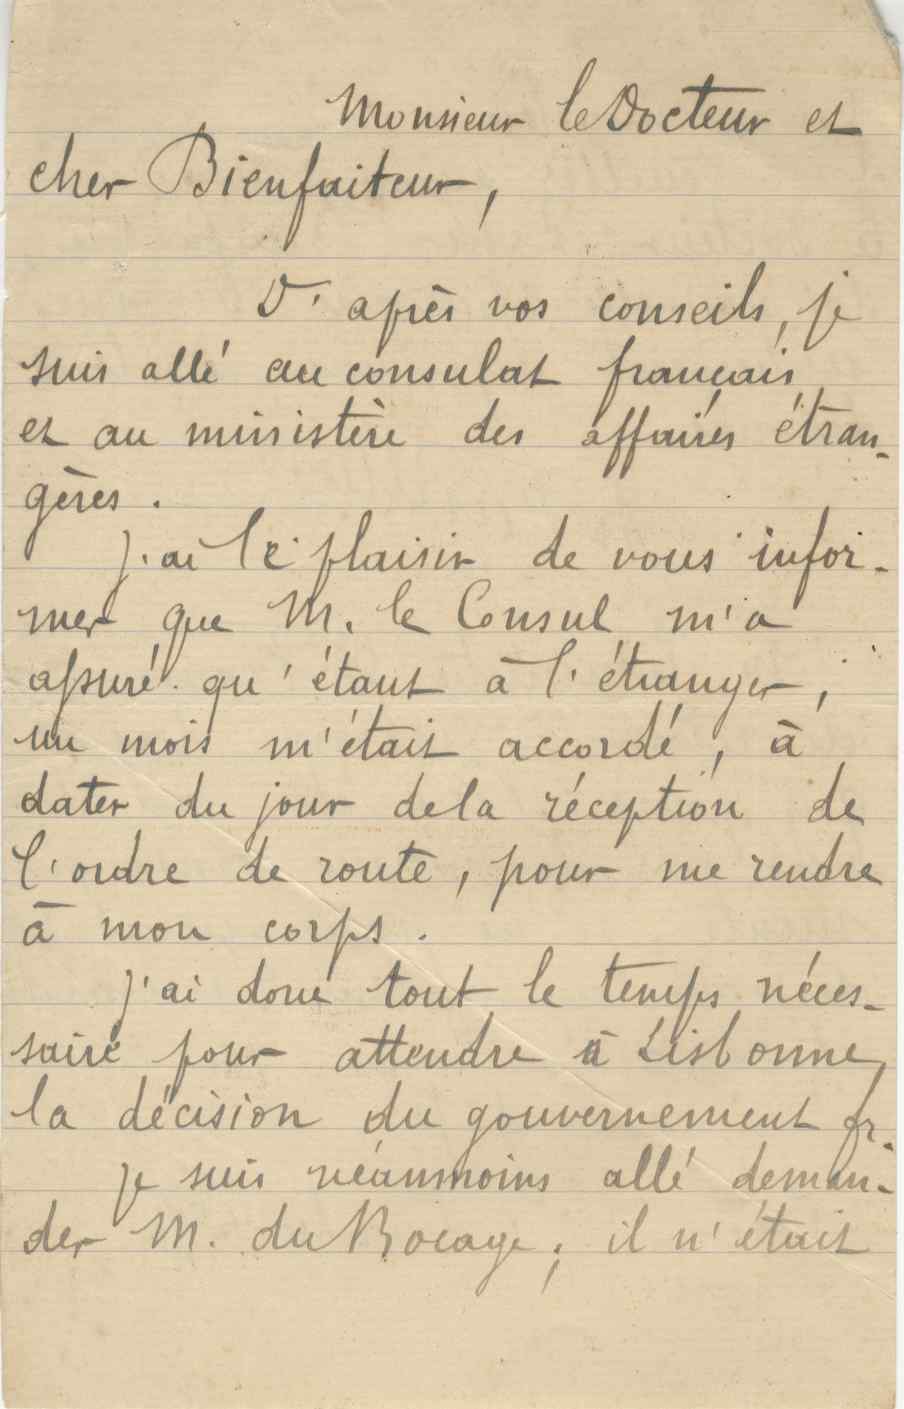 Monsieur le Docteur et
cher Bienfaiteur,
D'après vos conseils, je
suis allé au consulat français
et au ministère des affaires étran-
gères.
J'ai le plaisir de vous infor-
mer que M. le Consul m'a
assuré qu'étant à l'étranger,
un mois m'était accordé, à
dater du jour de la réception de
l'ordre de route, pour me rendre
à mon corps.
J'ai donc tout le temps néces-
saire pour attendre à Lisbonne,
la décision du gouvernement fr.
Je suis néanmoins allé deman-
der M. du Bocage; il n'était